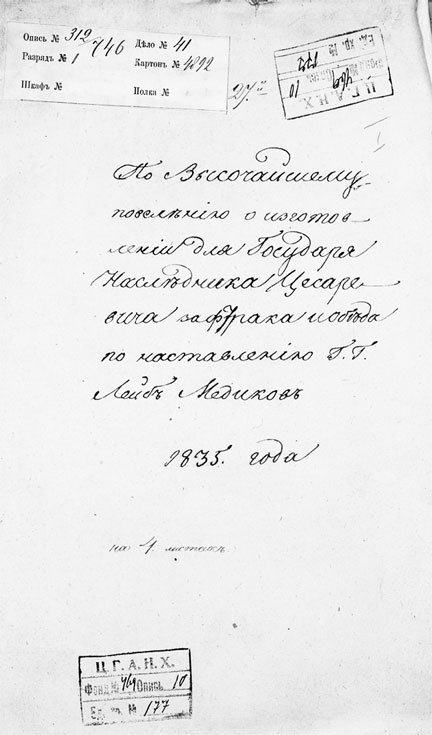 Опись № 312 746 Дѣло № 41
Разрядъ № 1 Картонъ № 4892
Шкафъ № Полка №
Ц. Г. А. Н. Х.
469 10
Ед. хр. № 177
I
По Высочайшему
повелѣнію о изготов-
леніи для Государя
Наслѣдника Цесаре-
вича завтрака и обѣда
по наставленію Г. Г.
Лейбъ Медиковъ
1835. года
на 4 листахъ
Ц. Г. А. Н. Х.
Фонд № 469 Опись 10
Ед. хр. № 177